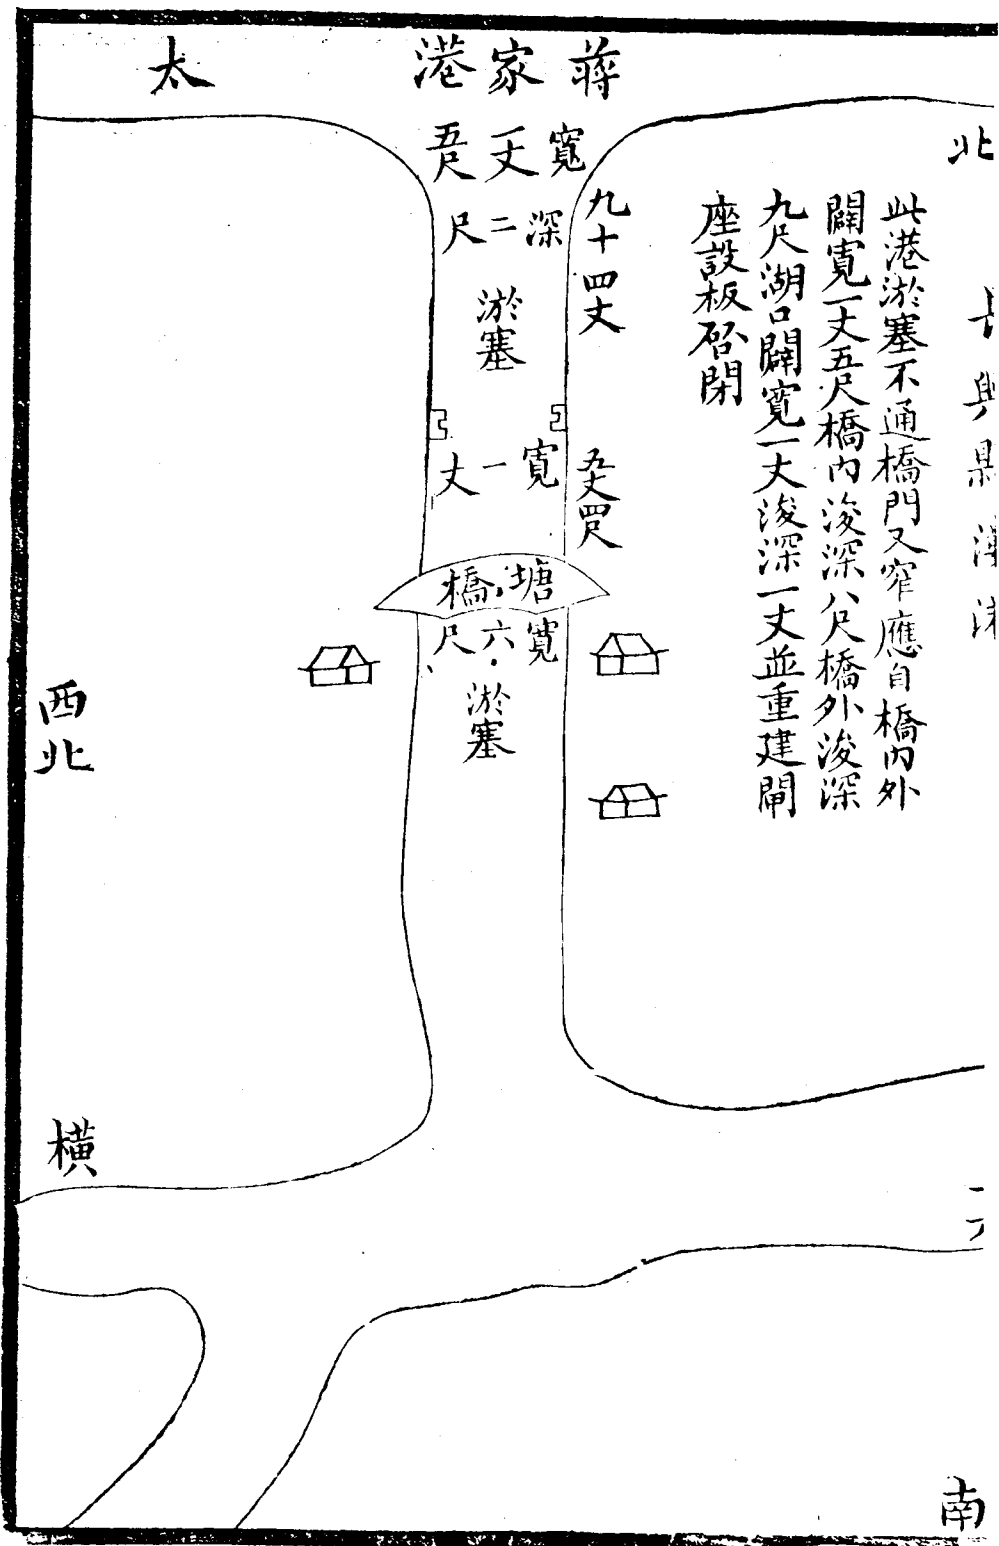 蔣家港
太
北
長興縣
此港淤塞不通橋門又窄應自橋內外
闢寬一丈吾尺橋內浚深八尺橋外浚深
九尺湖口闢寬一丈浚深一丈並重建閘
座設板啓閉
寬一丈吾尺
深二尺
淤塞
九十四丈
寬一丈
五丈四尺
塘橋
寬六尺
淤塞
西北
橫
南